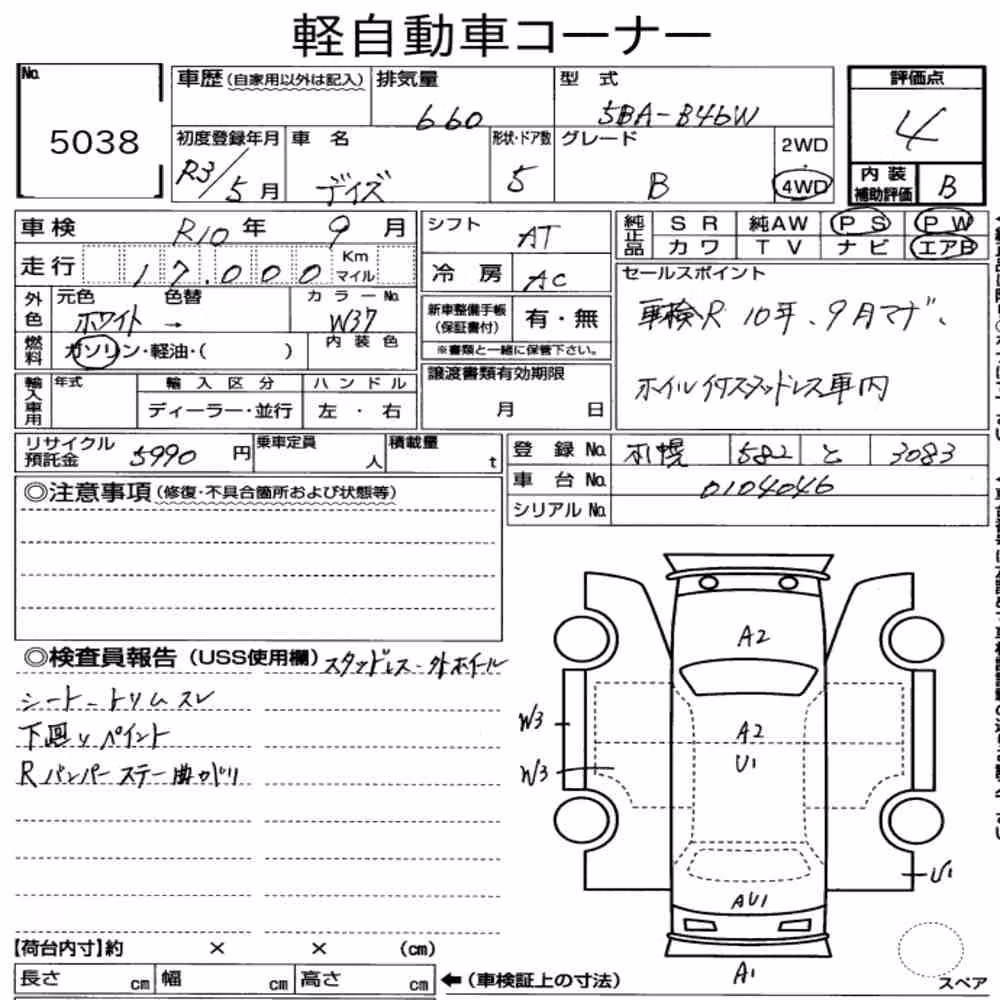 軽自動車コーナー
No. 5038
車歴(自家用以外は記入) 排気量 660 型式 5BA-B46W 評価点 4
初度登録年月 R3/5月 車名 デイズ 形状・ドア数 5 グレード B 2WD・4WD 内装補助評価 B
車検 R10年 9月 シフト AT 純正品 SR 純AW PS PW
カワ TV ナビ エアB
走行 17.000 Km マイル 冷房 AC
セールスポイント
車検R10年、9月マデ、
ホイル付スタッドレス車内
外色 元色 ホワイト 色替 → カラーNo. W37
新車整備手帳(保証書付) 有・無
※書類と一緒に保管下さい。
燃料 ガソリン・軽油・( ) 内装色
輸入車用 年式 輸入区分 ディーラー・並行 ハンドル 左・右
譲渡書類有効期限 月 日
リサイクル預託金 5990円 乗車定員 人 積載量 t
登録No. 札幌 582 と 3083
車台No. 0104046
シリアルNo.
◎注意事項(修復・不具合箇所および状態等)
◎検査員報告(USS使用欄) スタッドレス-外ホイール
シート-トリムスレ
下廻りペイント
Rバンパーステー曲がり
A2
W3
A2
U1
W3
U1
AU1
A1
スペア
【荷台内寸】約 × × (cm)
長さ cm 幅 cm 高さ cm ←(車検証上の寸法)